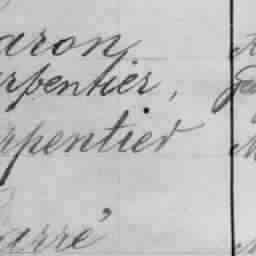 aron
arpentier,
rpentier
arré